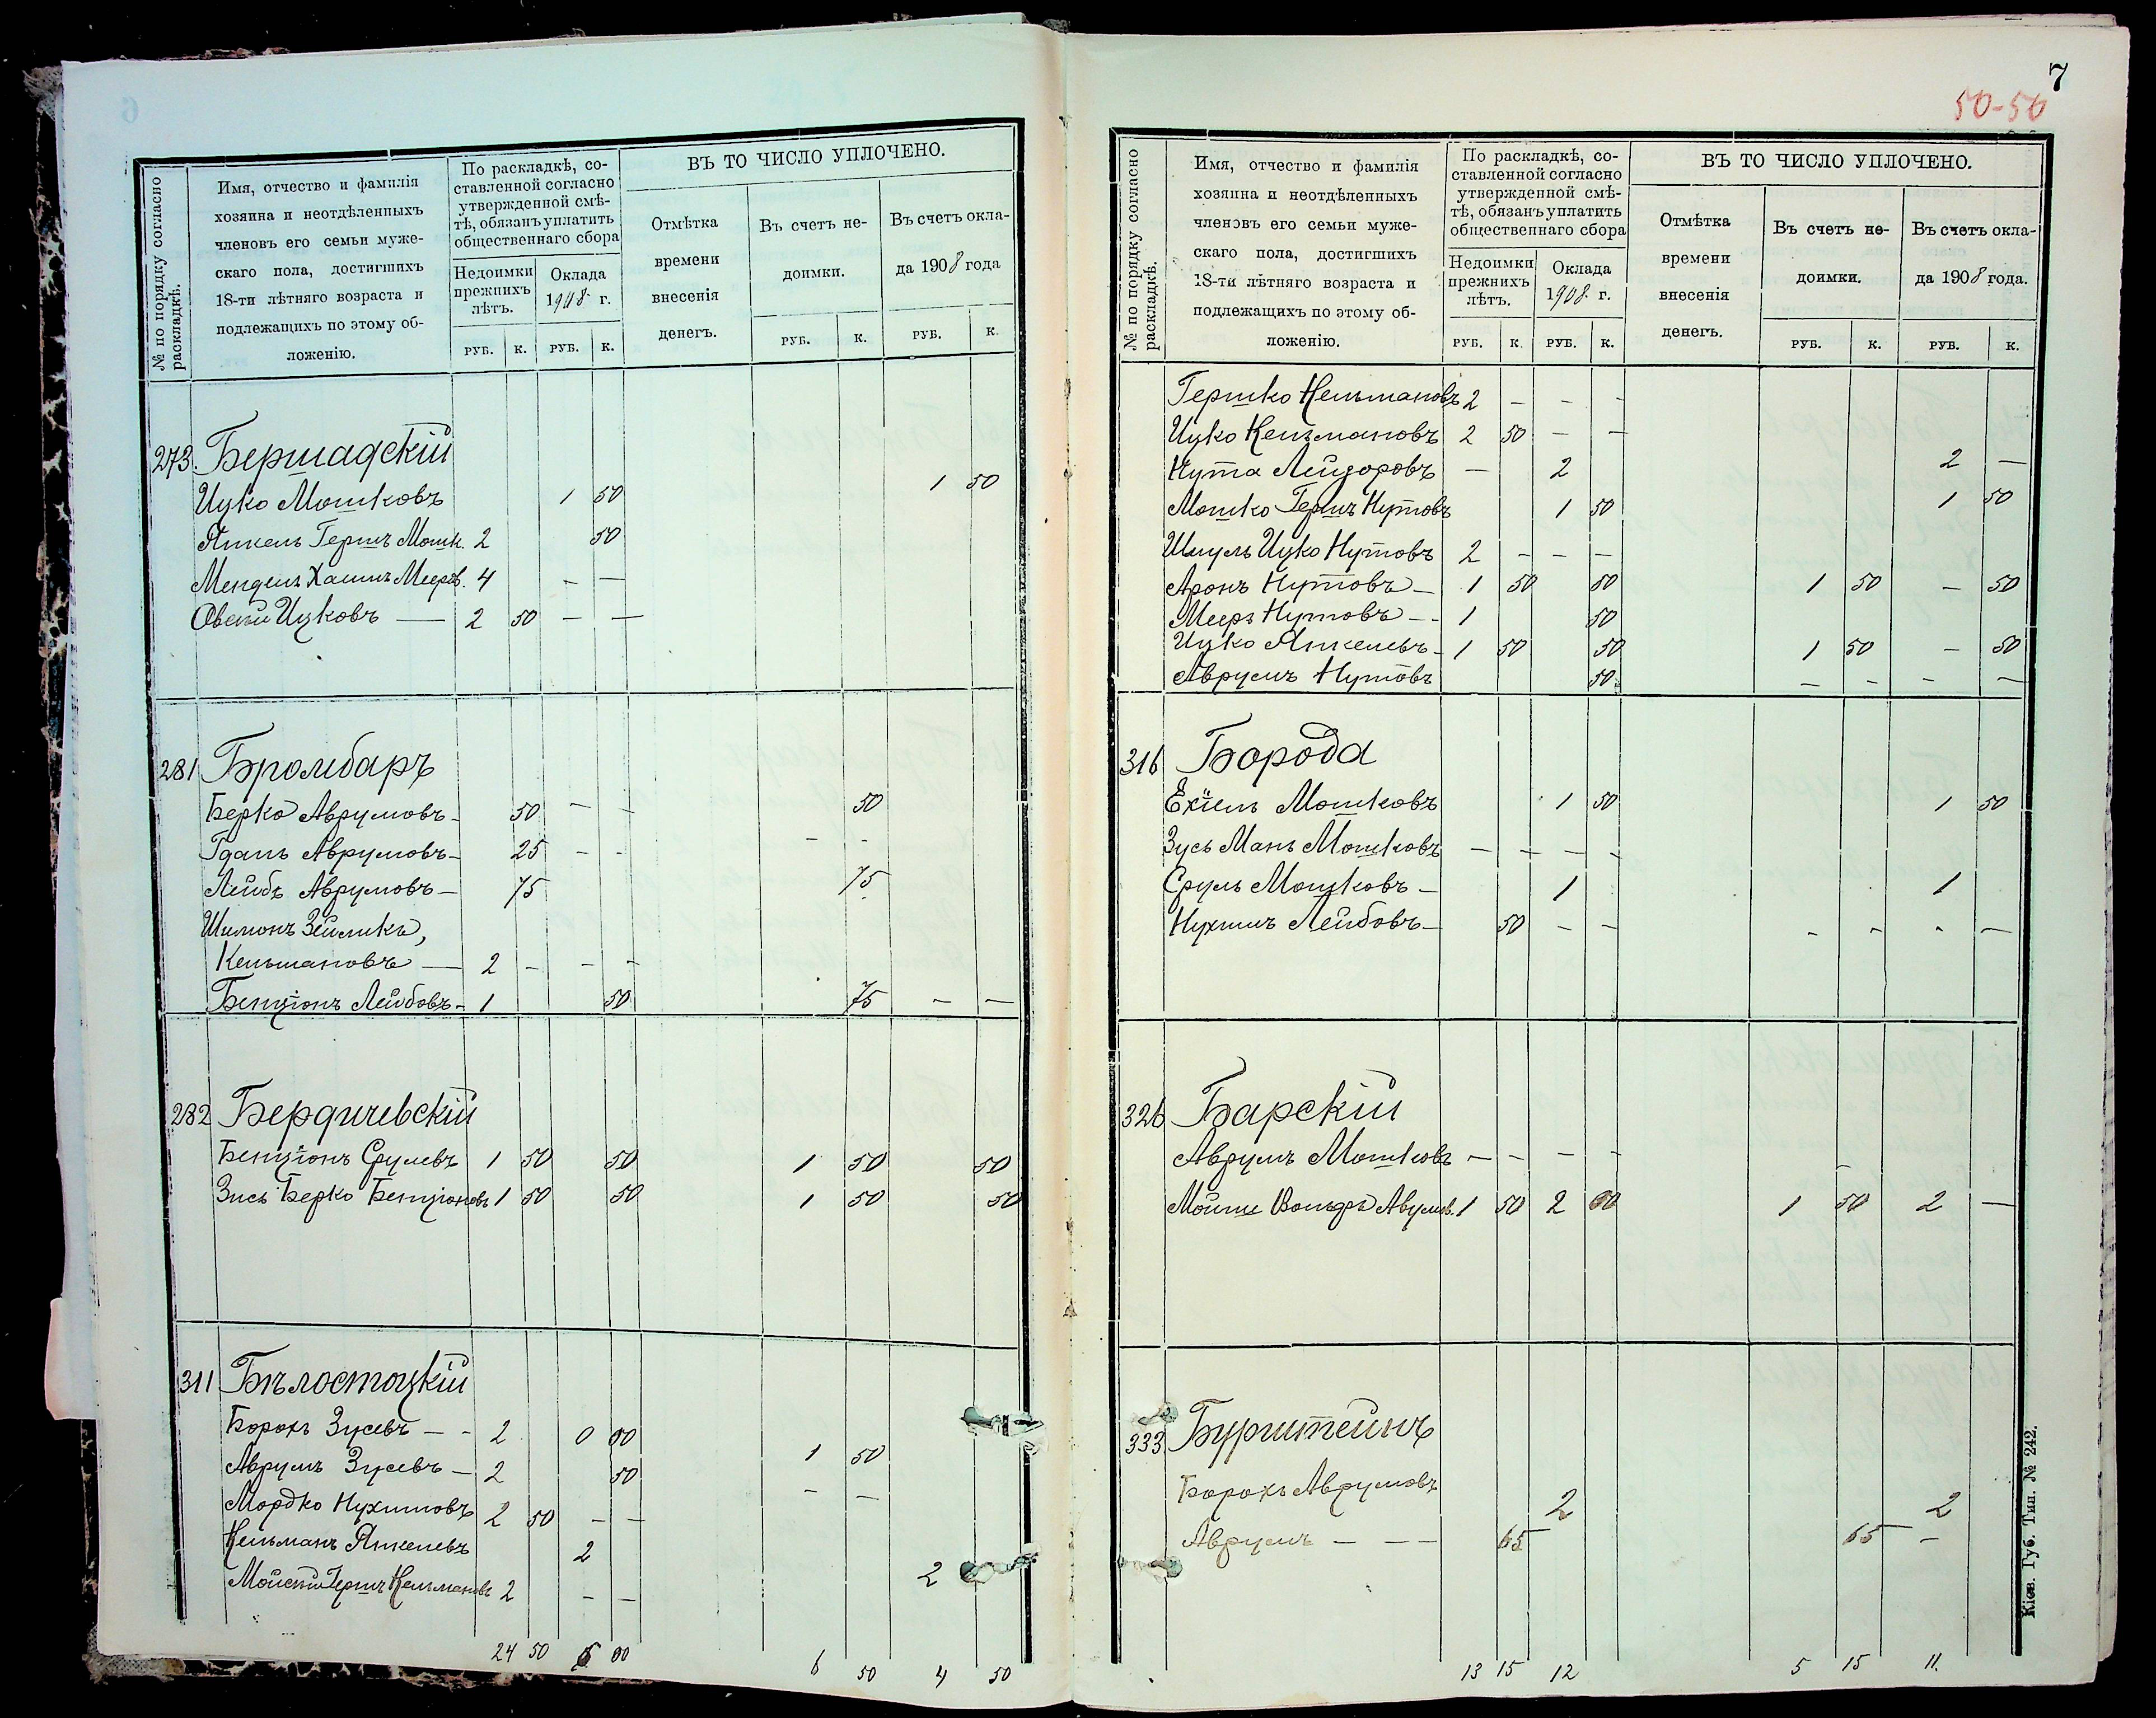 № по порядку согласно
раскладкѣ.
Имя, отчество и фамилія
хозяина и неотдѣленныхъ
членовъ его семьи муже-
скаго пола, достигшихъ
18-ти лѣтняго возраста и
подлежащихъ по этому об-
ложенію.
По раскладкѣ, со-
ставленной согласно
утвержденной смѣ-
тѣ, обязанъ уплатить
общественнаго сбора
Недоимки
прежнихъ
лѣтъ.
Оклада
1908 г.
ВЪ ТО ЧИСЛО УПЛОЧЕНО.
Отмѣтка
времени
внесенія
денегъ.
Въ счетъ не-
доимки.
Въ счетъ окла-
да 1908 года
РУБ. К. РУБ. К. РУБ. К. РУБ. К.
273. Бершадскій
Ицко Мошковъ 1 50 1 50
Янкель Гершъ Мошк. 2 50
Мендель Хаимъ Мееров. 4 — —
Овсей Ицковъ — 2 50 — —
281 Бромбаръ
Берко Аврумовъ - 50 — - 50
Гдаль Аврумовъ - 25 — - — -
Лейбъ Аврумовъ — 75 75
Шимонъ Зейликъ,
Кельмановъ — 2 - - -
Бенціонъ Лейбовъ - 1 50 75 — —
282 Бердичевскій
Бенціонъ Срулевъ 1 50 50 1 50 50
Зись Берко Бенціоновъ 1 50 50 1 50 50
311 Бѣлостоцкій
Борохъ Зусевъ — - 2 0 00
Аврумъ Зусевъ — 2 50 1 50
Мордко Нухимовъ 2 50 — - — —
Кельманъ Янкелевъ 2
Мойсей Гершъ Кельмановъ 2 - — 2
24 50 6 00 6 50 4 50
7
50-50
№ по порядку согласно
раскладкѣ.
Имя, отчество и фамилія
хозяина и неотдѣленныхъ
членовъ его семьи муже-
скаго пола, достигшихъ
18-ти лѣтняго возраста и
подлежащихъ по этому об-
ложенію.
По раскладкѣ, со-
ставленной согласно
утвержденной смѣ-
тѣ, обязанъ уплатить
общественнаго сбора
Недоимки
прежнихъ
лѣтъ.
Оклада
1908. г.
ВЪ ТО ЧИСЛО УПЛОЧЕНО.
Отмѣтка
времени
внесенія
денегъ.
Въ счетъ не-
доимки.
Въ счетъ окла-
да 1908 года.
РУБ. К. РУБ. К. РУБ. К. РУБ. К.
Гершко Кельмановъ 2 — - -
Ицко Кельмановъ 2 50 — —
Нута Лейзоровъ — 2 2 —
Мошко Гершъ Нутовъ 1 50 1 50
Шмуль Ицко Нутовъ 2 - — —
Аронъ Нутовъ — 1 50 50 1 50 — 50
Мееръ Нутовъ — - 1 50
Ицко Янкелевъ - 1 50 50 1 50 — 50
Аврумъ Нутовъ 50. — - - —
316 Борода
Ехіель Мошковъ 1 50 1 50
Зусь Манъ Мошковъ — — — -
Сруль Мошковъ — 1 1
Нухимъ Лейбовъ — 50 — — - - - —
326 Барскій
Аврумъ Мошковъ — - — - —
Мойше Вольфъ Аврумов. 1 50 2 00 1 50 2 —
333. Бурштейнъ
Борохъ Аврумовъ 2 2
Аврумъ — — — 65 65 —
13 15 12 5 15 11.
Кіев. Губ. Тип. № 242.